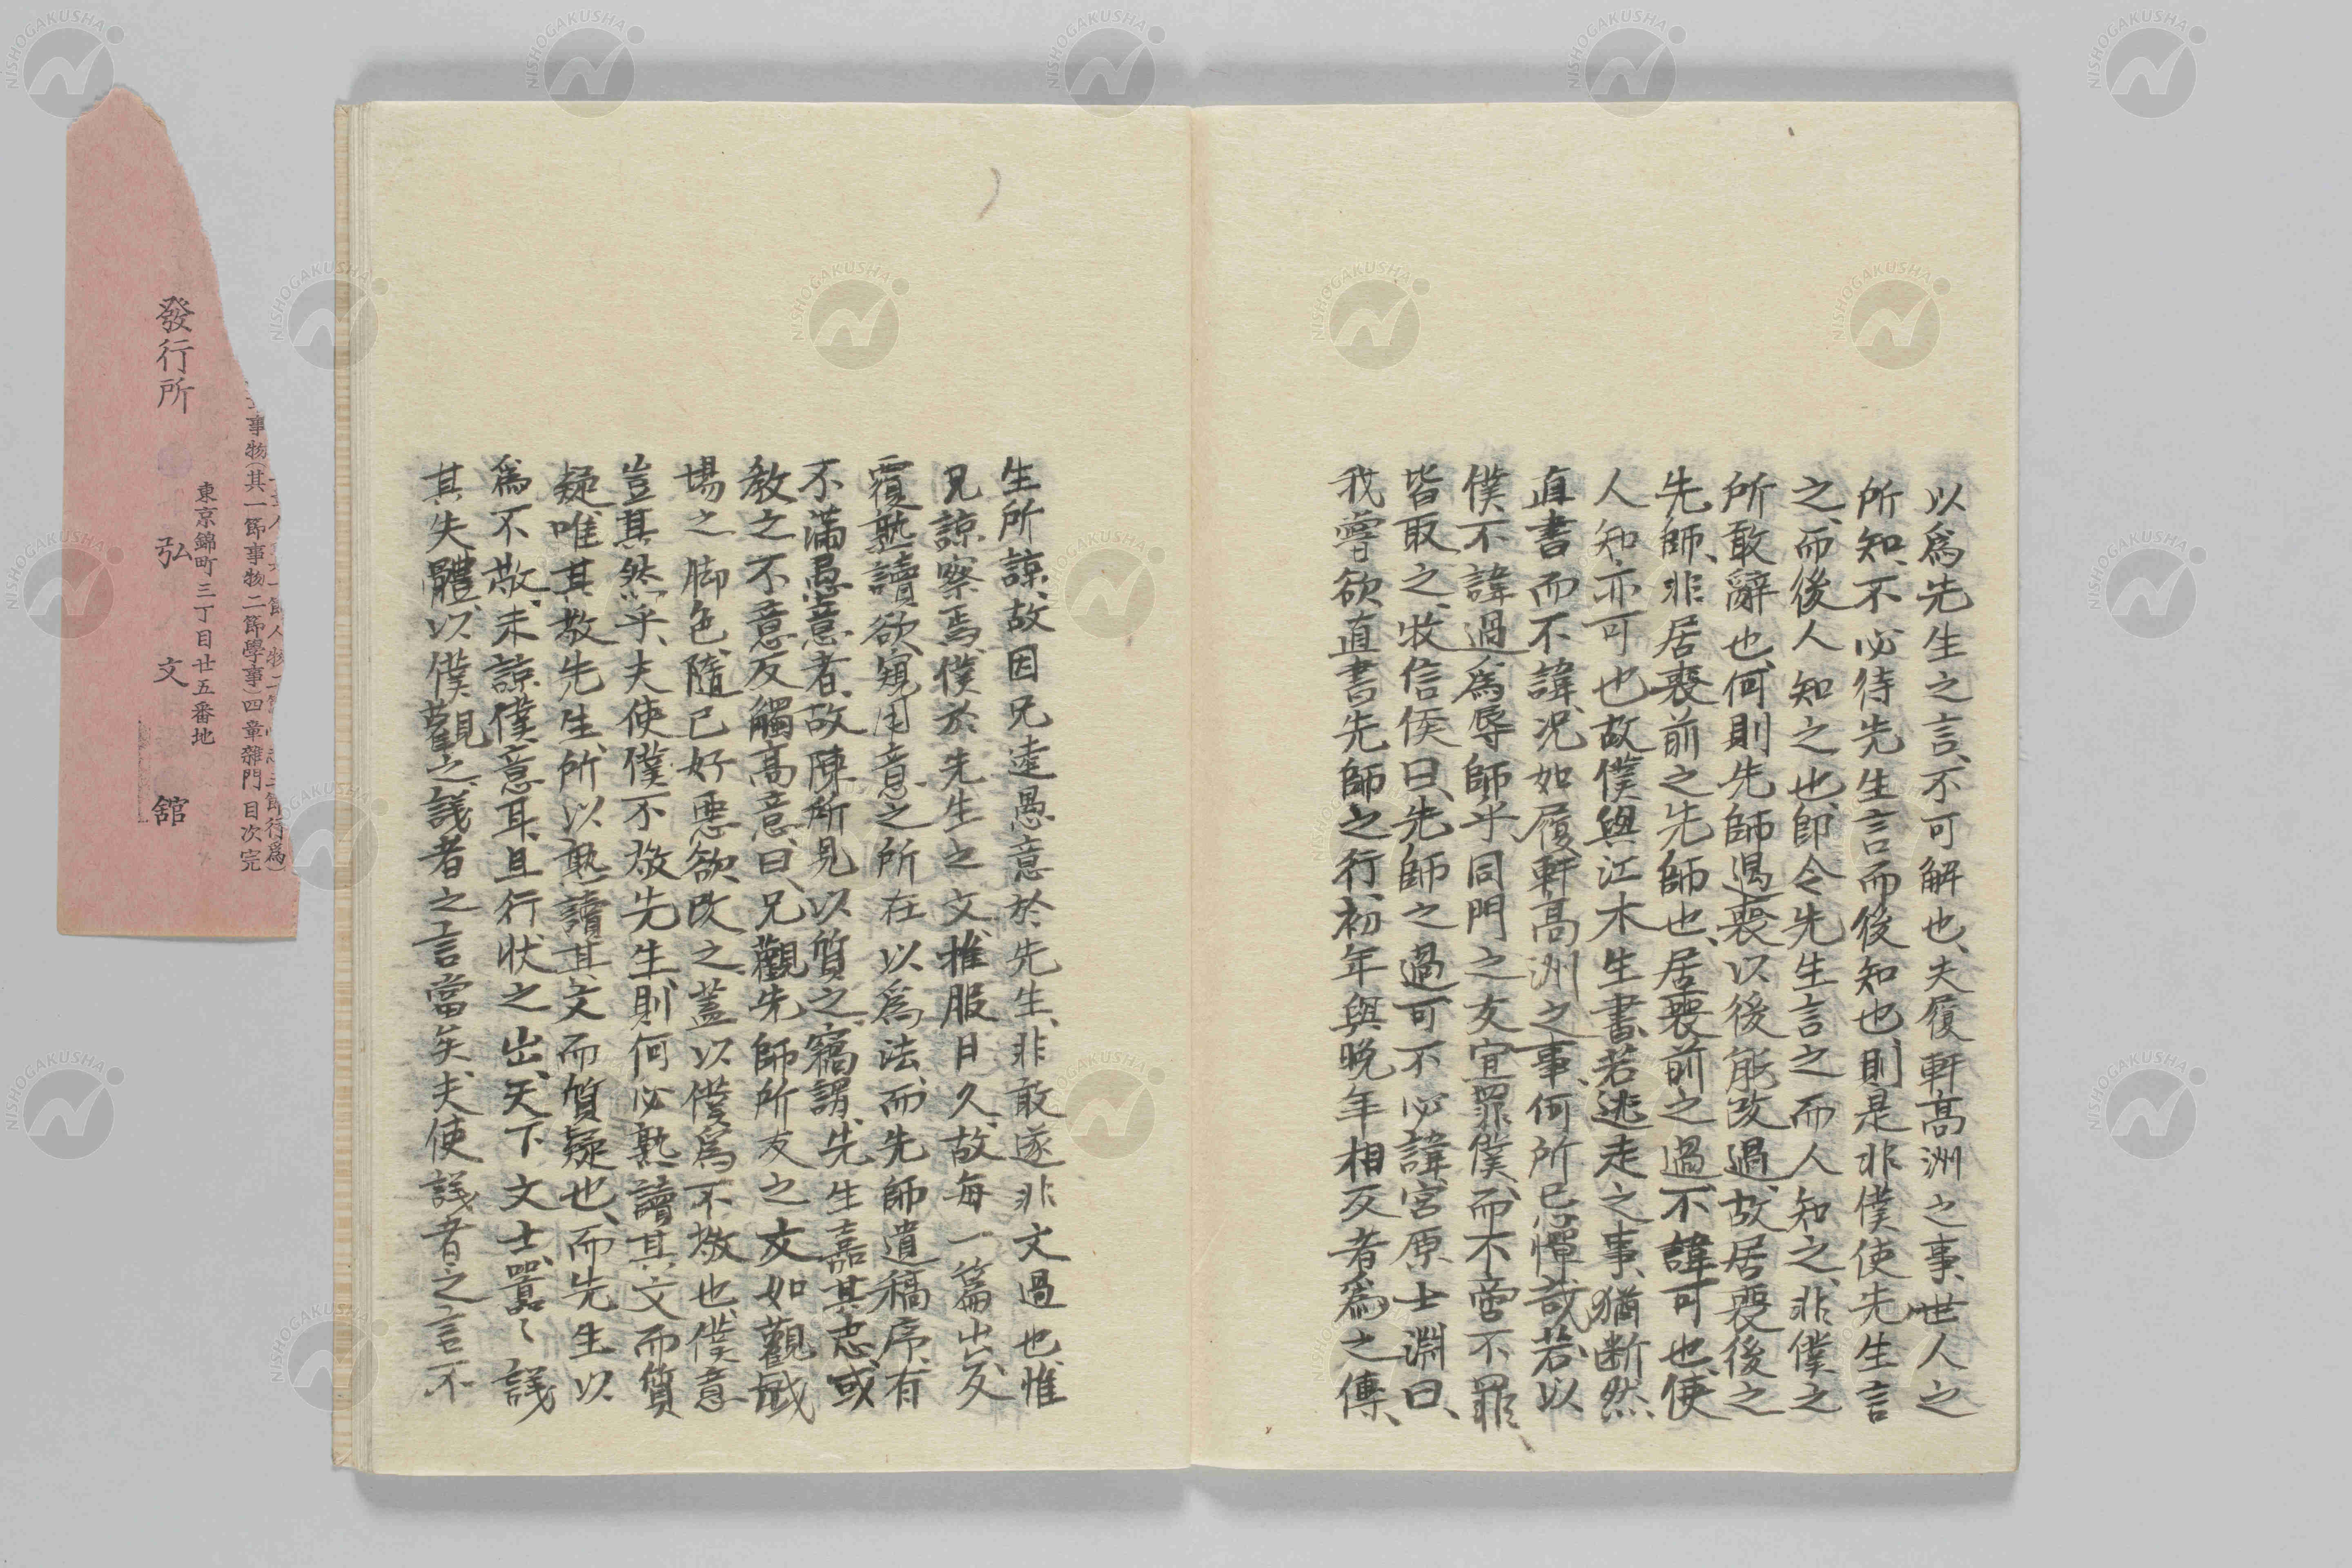 以爲先生之言、不可解也、夫履軒髙洲之事、世人之
所知、不必待先生言而後知也、則是非僕使先生言
之、而後人知之也、卽令先生言之而人知之、非僕之
所敢辭也、何則先師遏喪以後能改過、故居喪後之
先師、非居喪前之先師也、居喪前之過、不諱可也、使
人知亦可也故僕與江木生書、若逃走之事、猶断然
直書而不諱、况如履軒髙洲之事、何所忌憚哉、若以
僕不諱過爲辱師乎同門之友宜罪僕而不啻不罪、
皆取之、牧信侯曰、先師之過可不必諱、宮原士淵曰、
我嘗欲直書先師之行、初年與晩年相反者爲之傳、
生所諒、故因兄達愚意於先生、非敢遂非文過也、惟
兄諒察焉、僕於先生之文、推服日久、故每一篇出、反
覆熟讀、欲窺用意之所在以爲法、而先師遺稿序、有
不滿愚意者、故陳所見以質之、竊謂、先生嘉其忠、或
敎之、不意反觸髙意、曰、兄觀先師所友之文如觀戲
場之脚色、隨己好惡欲改之、蓋以僕爲不敬也、僕意
豈其然乎、夫使僕不敬先生、則何必熟讀其文而質
疑、唯其敬先生、所以熟讀其文而質疑也、而先生以
爲不敬、未諒僕意耳、且行狀之出、天下文士、囂〻議
其失體、以僕觀之、議者之言當矣、夫使議者之言不
事物(其一節事物二節學事)四章雜門目次完
東京錦町三丁目廿五番地
發行所 弘文舘
NISHOGAKUSHA